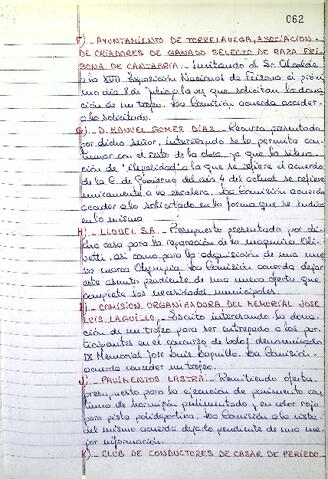 062
F).- AYUNTAMIENTO DE TORRELAVEGA, ASOCIACION
DE CRIADORES DE GANADO SELECTO DE RAZA FRI-
SONA DE CANTABRIA.- Invitando al Sr. Alcalde
a la XVII Exposición Nacional de Frisona el próxi-
mo día 8 de julio a la vez que solicitan la dona-
ción de un trofeo. La Comisión acuerda acceder
a lo solicitado.
G).- D. MANUEL GOMEZ DIAZ.- Recurso presentado
por dicho señor, interesando se le permita con-
tinuar con el resto de la obra, ya que la situa-
ción de "ilegalidad" a la que se refiere el acuerdo
de la C. de Gobierno del día 4 del actual se refiere
unicamente a la escalera. La Comisión acuerda
acceder a lo solicitado en la forma que se indica
en el mismo.
H).- LIQUEL S.A.- Presupuesto presentado por di-
cha casa para la reparación de la maquina Oli-
vetti, así como para la adquisición de una nue-
va marca Olympia. La Comisión acuerda dejar
este asunto pendiente de una nueva oferta que
complete las necesidades municipales.
I).- COMISION ORGANIZADORA DEL MEMORIAL JOSE
LUIS LAGUILLO.- Escrito interesando la dona-
ción de un trofeo para ser entregado a los par-
ticipantes en el concurso de bolos denominado
IX Memorial Jose Luis Laguillo. La Comisión
acuerda conceder un trofeo.
J).- PAVIMENTOS LASTRA.- Remitiendo oferta-
presupuesto para la ejecución de pavimento con-
tinuo de hormigón pulimentado, en color rojo
para pista polideportiva. La Comisión a la vista
del mismo acuerda dejarlo pendiente de una ma-
yor información.
K).- CLUB DE CONDUCTORES DE CASAR DE PERIEDO.